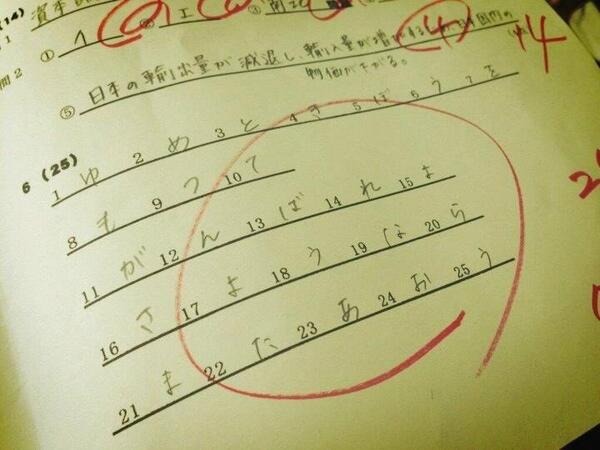 (14) 資本
① イ ② エ ③ 南北 (4) 14
問2
⑤ 日本の輸出量が減退し、輸入量が増加する 国内の
物価が下がる。
6 (25)
1 ゆ 2 め 3 と 4 き 5 ぼ 6 う 7 を
8 も 9 つ 10 て
11 が 12 ん 13 ば 14 れ 15 よ
16 さ 17 よ 18 う 19 な 20 ら
21 ま 22 た 23 あ 24 お 25 う